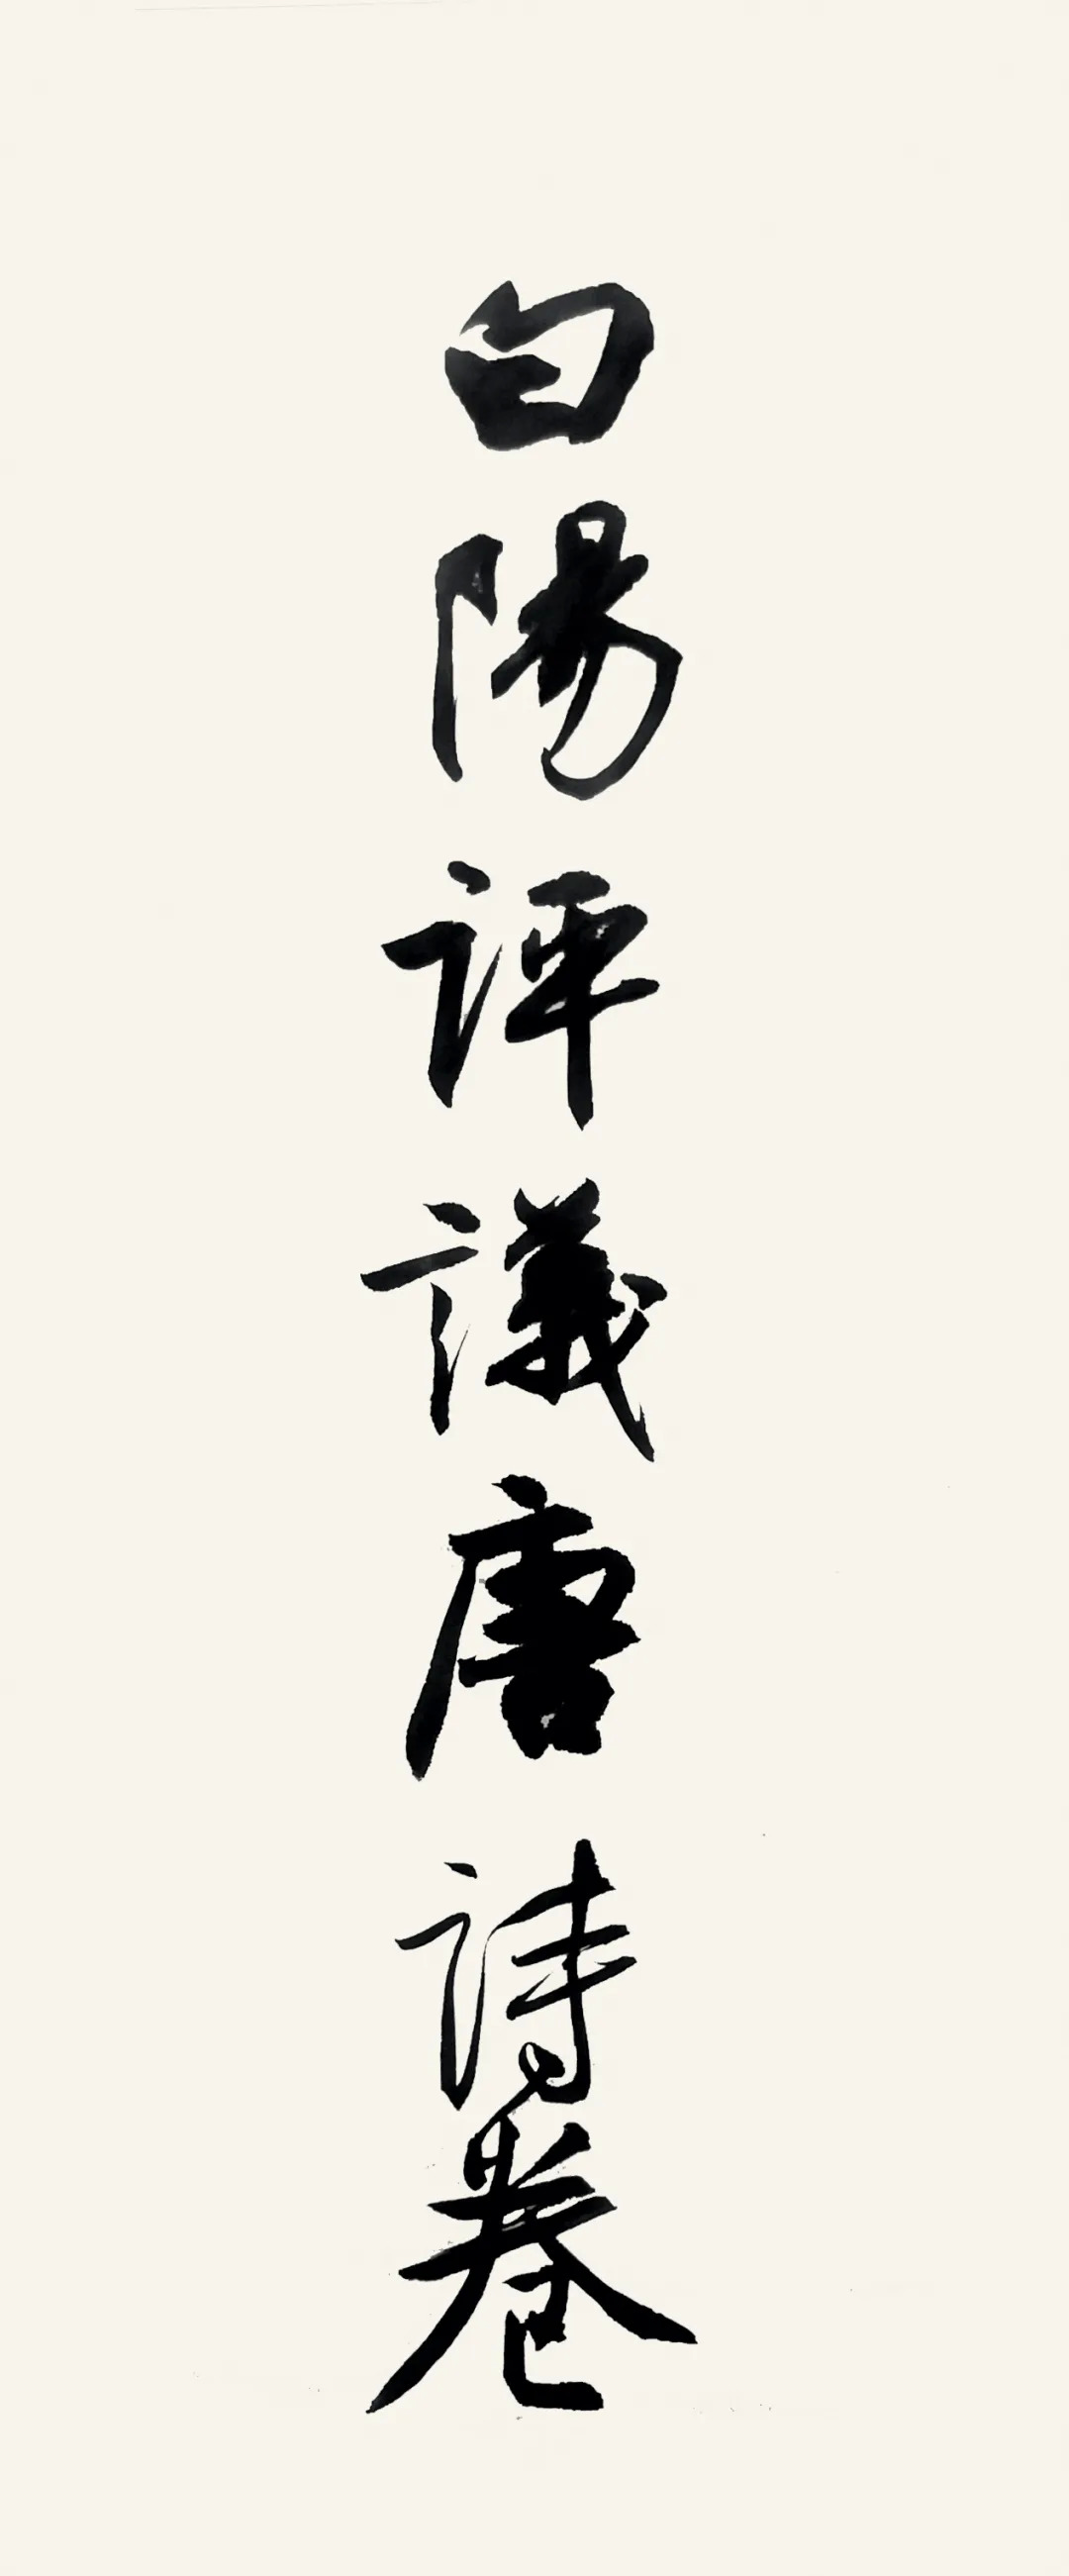 白陽評議唐詩卷